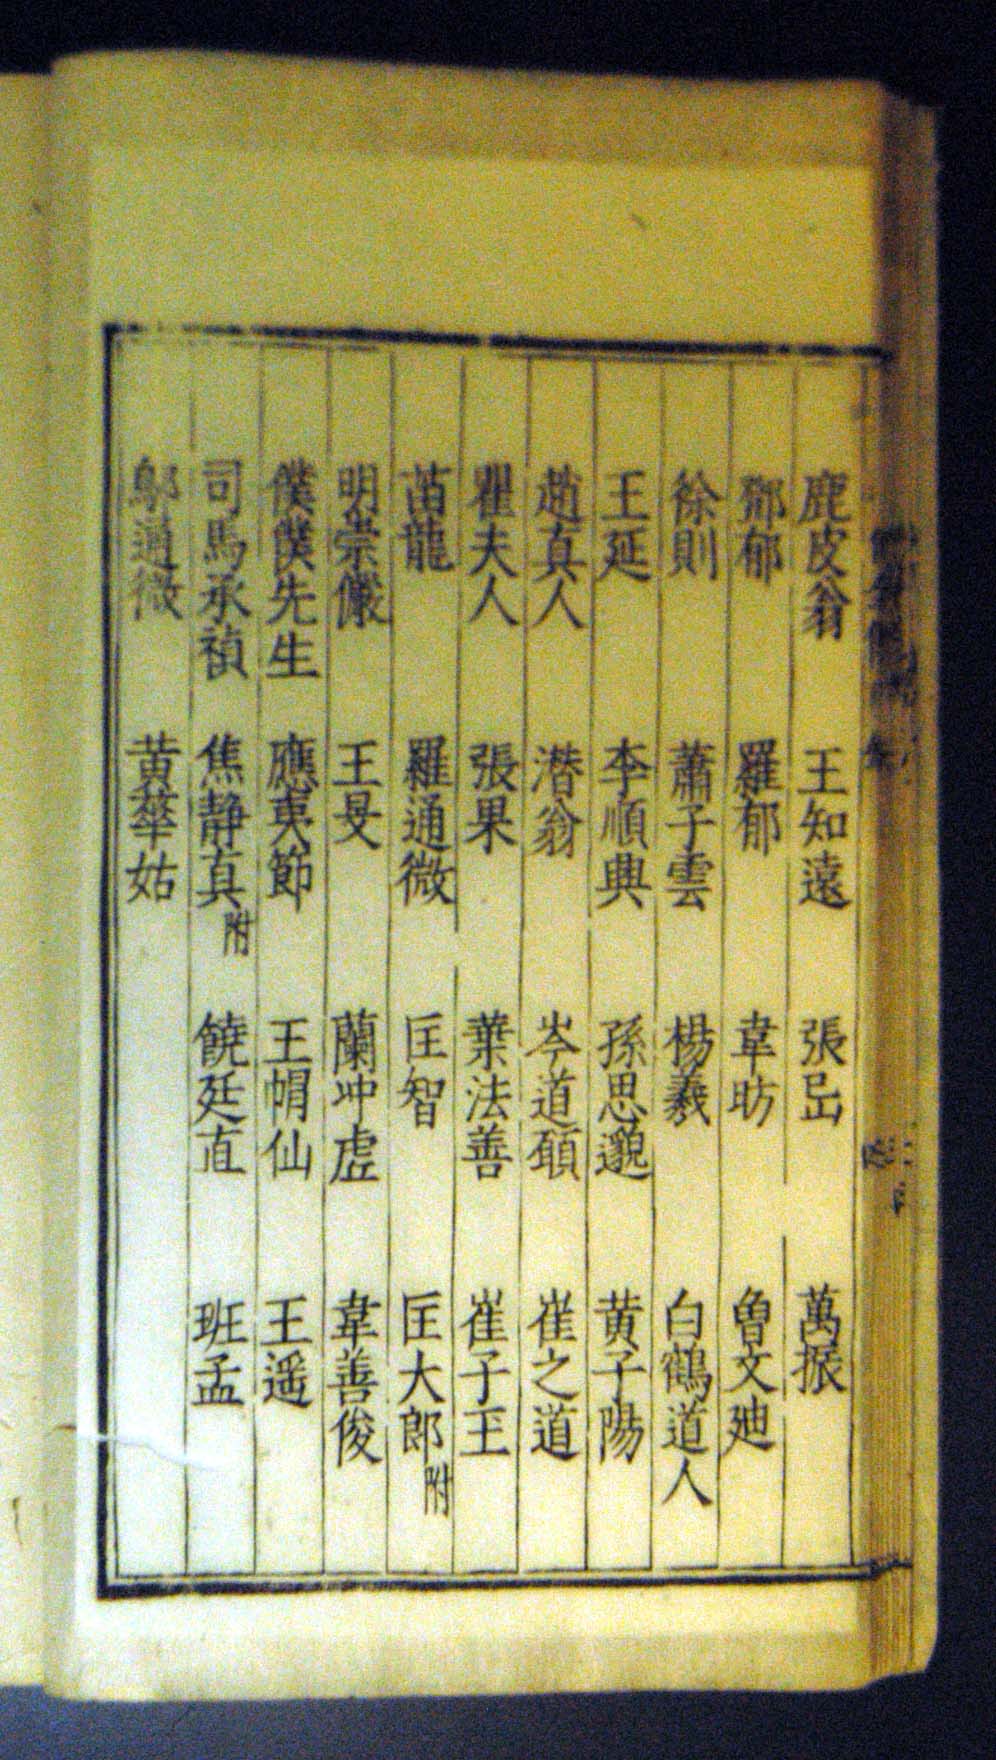 鹿皮翁 王知遠 張㠯 萬振
鄧郁 羅郁 韋昉 魯文廸
徐則 蕭子雲 楊羲 白鶴道人
王延 李順興 孫思邈 黄子陽
趙真人 潛翁 岑道願 崔之道
瞿夫人 張果 葉法善 崔子玉
苗龍 羅通微 匡智 匡大郎附
明崇儼 王旻 蘭冲虛 韋善俊
僕僕先生 應夷節 王帽仙 王遥
司馬承禎 焦静真附 饒廷直 班孟
鄔通微 黄華姑